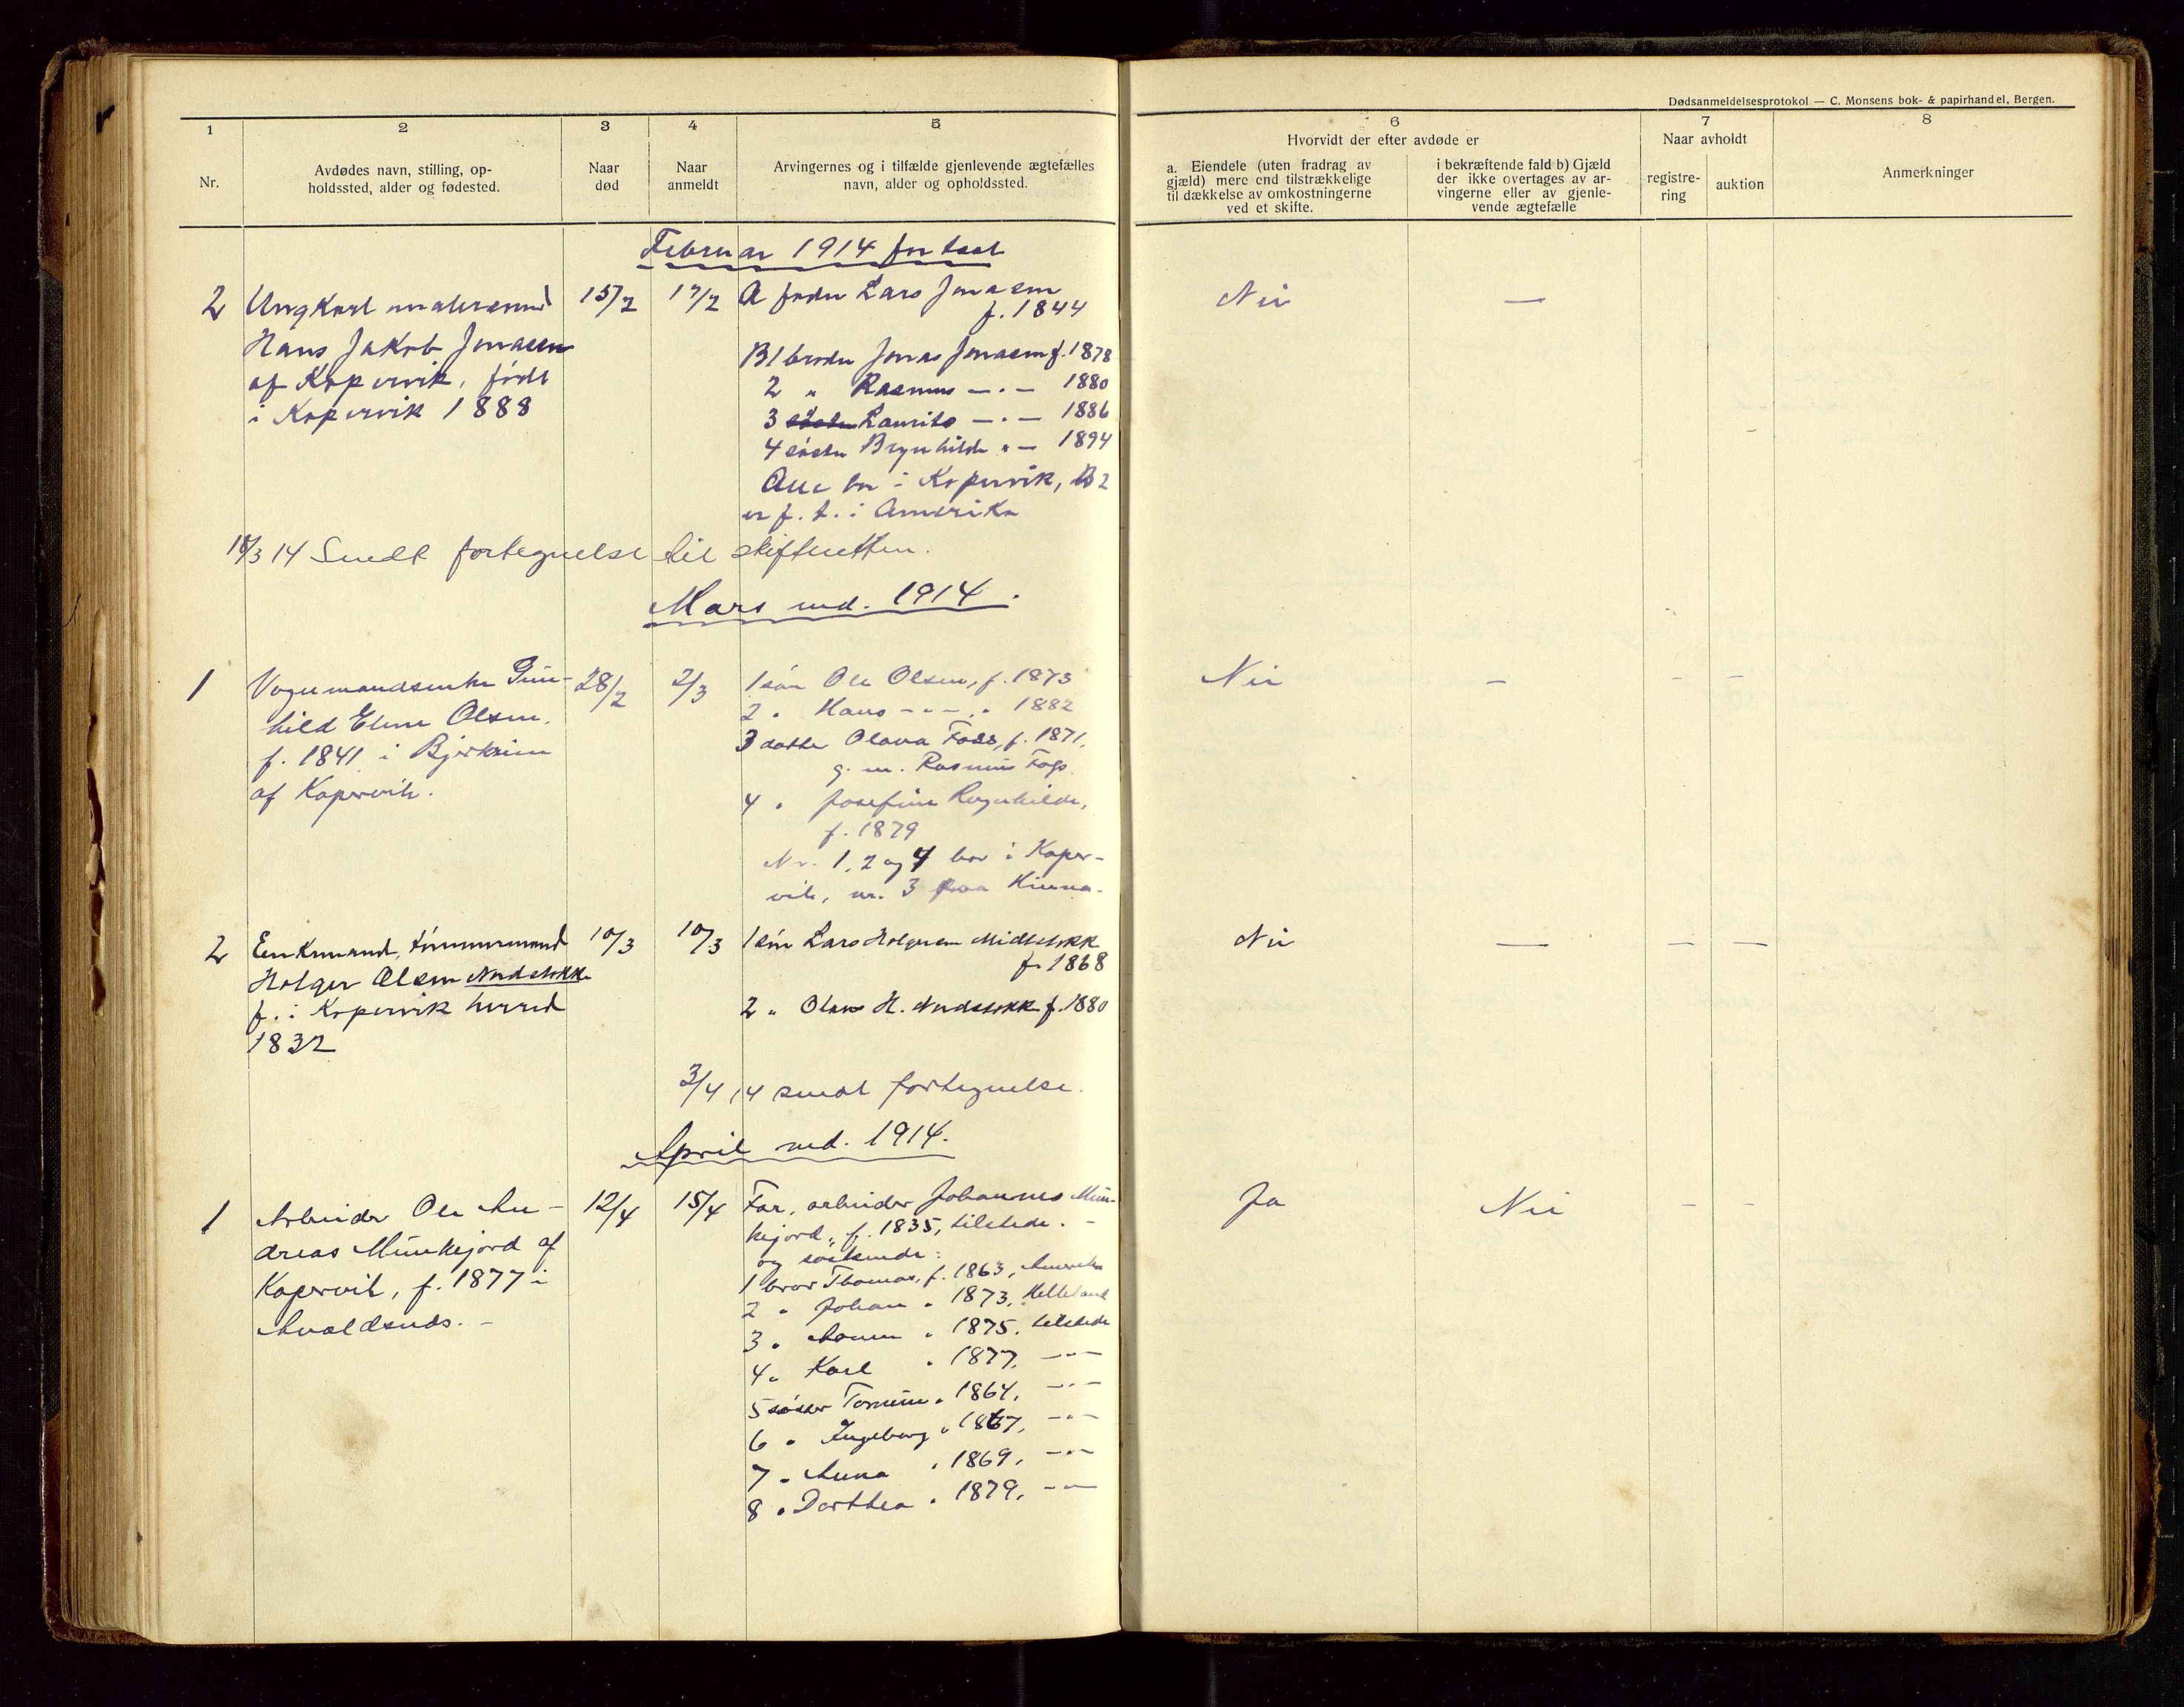 Dødsanmeldelsesprotokol — C. Monsens bok- & papirhandel, Bergen.
1 2 3 4 5 6 7 8
Nr.
Avdødes navn, stilling, op-
holdssted, alder og fødested.
Naar
død
Naar
anmeldt
Arvingernes og i tilfælde gjenlevende ægtefælles
navn, alder og opholdssted.
Hvorvidt der efter avdøde er
a. Eiendele (uten fradrag av
gjæld) mere end tilstrækkelige
til dækkelse av omkostningerne
ved et skifte.
i bekræftende fald b) Gjæld
der ikke overtages av ar-
vingerne eller av gjenle-
vende ægtefælle
Naar avholdt
registre-
ring
auktion
Anmerkninger
Februar 1914 fortsat
2 Ungkarl malersvend
Hans Jakob Jonasen
af Kopervik, født
i Kopervik 1888
15/2 17/2
A fader Lars Jonasen
f. 1844
B1 broder Jonas Jonasen f. 1878
2 " Rasmus — " — 1880
3 Laurits — " — 1886
4 søster Brynhilde " — 1894
Alle bor i Kopervik, B2
er f. t. i Amerika
Nei —
18/3 14 Sendt fortegnelse til skifteretten.
Mars md. 1914.
1 Vognmandsenke Gun-
hild Eline Olsen,
f. 1841 i Bjerkreim
af Kopervik.
28/2 2/3
1 søn Ole Olsen, f. 1873
2 " Hans — " — " 1882
3 datter Olava Foss, f. 1871,
g. m. Rasmus Foss
4 " Josefine Ragnhilde,
f. 1879
Nr. 1, 2 og 4 bor i Koper-
vik, nr. 3 paa Hinna.
Nei — — —
2 Enkemand, tømmermand
Holger Olsen Nordstokke
f. i Kopervik herred
1832
10/3 10/3
1 søn Lars Holgersen Midtstokk
f. 1868
2 " Olaus H. Nordstokk f. 1880
Nei — — —
3/4 14 sendt fortegnelse.
April md. 1914.
1 Arbeider Ole An-
dreas Munkejord af
Kopervik, f. 1877 i
Avaldsnes. —
12/4 15/4
Far, arbeider Johannes Mun-
kejord, f. 1835, tilstede. —
og søskende:
1 bror Thomas, f. 1863, Amerika
2 " Johan " 1873, Helleland
3 " " 1875, tilstede
4 " Karl " 1877, — " —
5 søster Tomine " 1864, — " —
6 " Ingeborg " 1867, — " —
7 " Anna " 1869, — " —
8 " Dorthea " 1879, — " —
Ja Nei — —